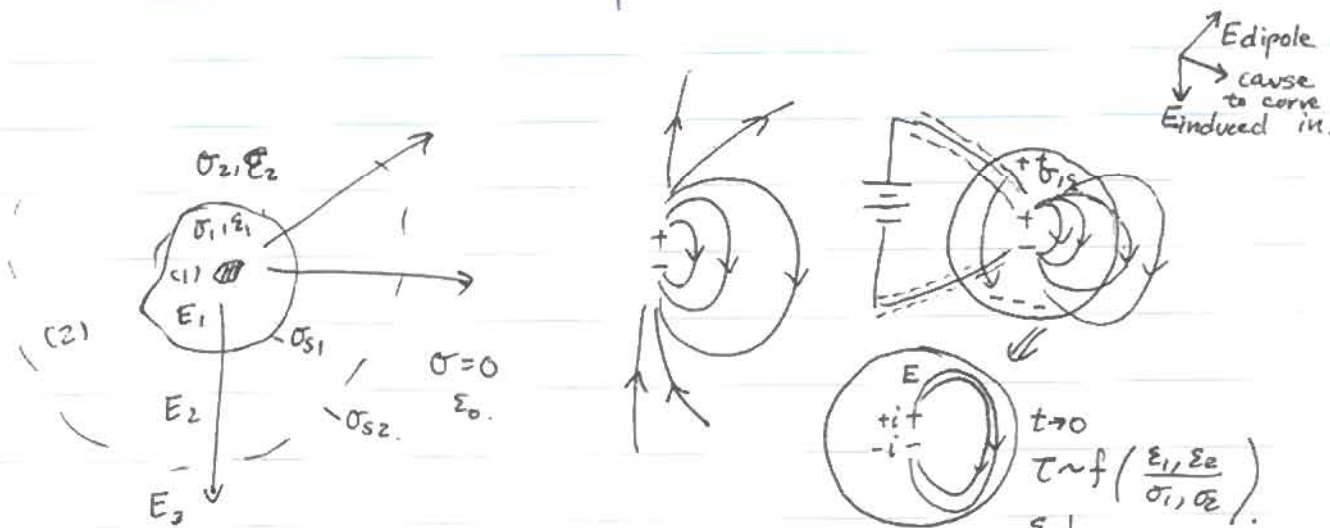 E dipole
cause
to corve
Einduced in.
σ2, ε2
σ1, ε1
(1)
E1
(2)
σs1
σ=0
ε0.
E2
σs2.
E3
+
-
+ +
σ1s
+
-
- - -
E
+i +
-i -
t→0
τ~f (ε1, ε2 / σ1, σ2).